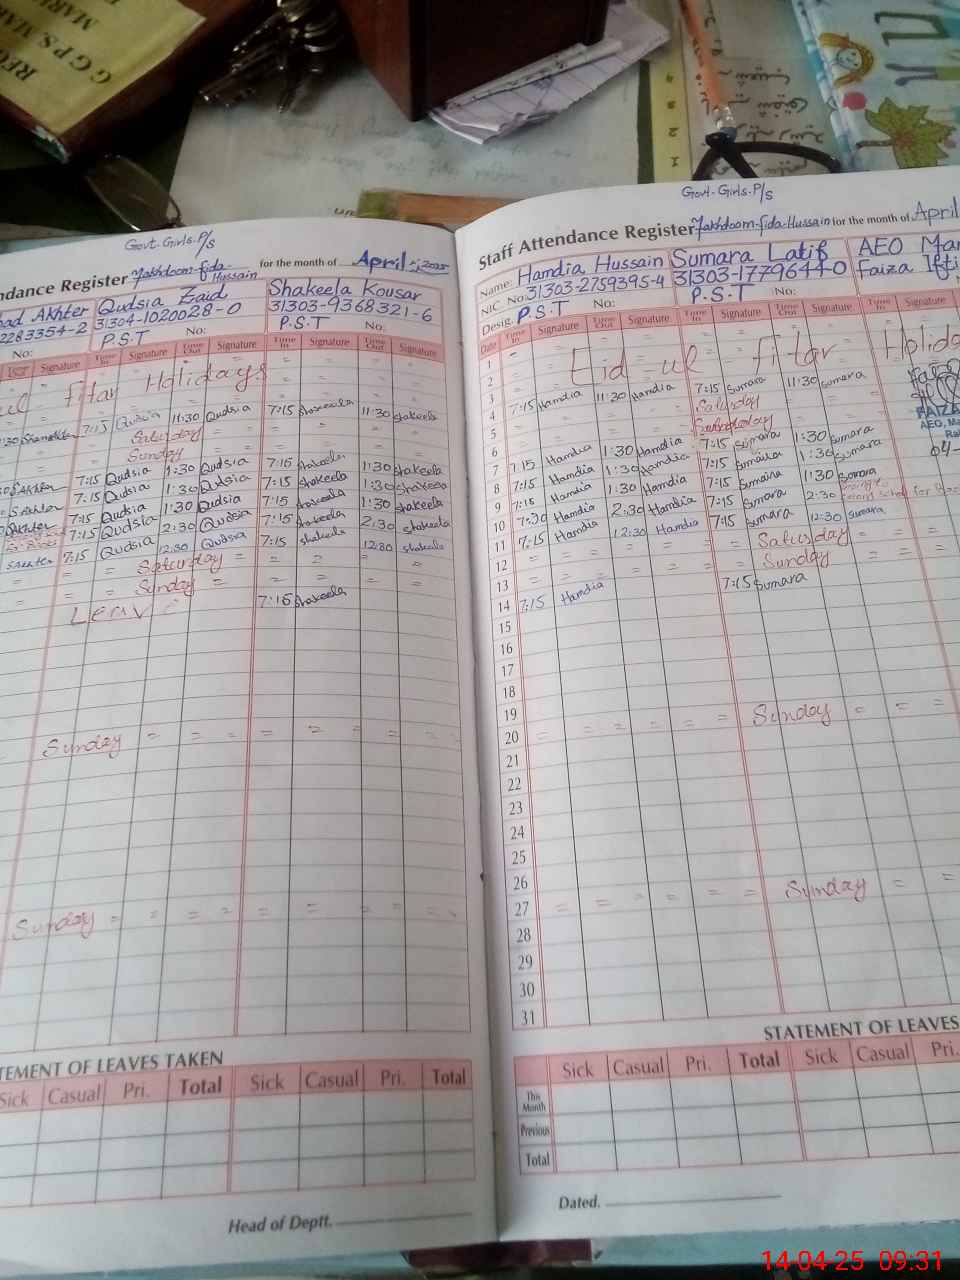 G G P S. MAK
Govt-Girls-P/s
ndance Register Makhdoom-fida-Hussain for the month of April-,2025
Akhter Qudsia Zaid Shakeela Kousar
2283354-2 31304-1020028-0 31303-9368321-6
No: P.S.T No: P.S.T No:
Signature Time In Signature Time Out Signature Time In Signature Time Out Signature
ul Fitar Holidays
:30 7:15 Qudsia 11:30 Qudsia 7:15 Shakeela 11:30 Shakeela
Saturday = = = =
Sunday = = = =
S.Akhter 7:15 Qudsia 1:30 Qudsia 7:15 Shakeela 1:30 Shakeela
S.Akhter 7:15 Qudsia 1:30 Qudsia 7:15 Shakeela 1:30 Shakeela
Akhter 7:15 Qudsia 1:30 Qudsia 7:15 Shakeela 1:30 Shakeela
7:15 Qudsia 2:30 Qudsia 7:15 Shakeela 2:30 Shakeela
7:15 Qudsia 12:30 Qudsia 7:15 Shakeela 12:30 Shakeela
= = = Saturday = = = = =
= = = Sunday = = = = =
Leav 7:15 Shakeela
Sunday = = = = = = =
Sunday = = = = = = = =
TEMENT OF LEAVES TAKEN
Sick Casual Pri. Total Sick Casual Pri. Total
Head of Deptt.
Govt-Girls-P/s
Staff Attendance Register Makhdoom-fida-Hussain for the month of April
Name: Hamdia Hussain Sumara Latif AEO Mar
NIC No: 31303-2759395-4 31303-1779644-0 Faiza Ifti
Desig. P.S.T No: P.S.T No:
Date Time In Signature Time Out Signature Time In Signature Time Out Signature Time In Signature
1
2 Eid ul fitar Holida
3
4 7:15 Hamdia 11:30 Hamdia 7:15 Sumara 11:30 Sumara
5 Saturday
6 Sunday
7 7:15 Hamdia 1:30 Hamdia 7:15 Sumara 1:30 Sumara
8 7:15 Hamdia 1:30 Hamdia 7:15 Sumara 1:30 Sumara
9 7:15 Hamdia 1:30 Hamdia 7:15 Sumara 1:30 Sumara
10 7:30 Hamdia 2:30 Hamdia 7:15 Sumara 2:30
11 7:15 Hamdia 12:30 Hamdia 7:15 Sumara 12:30 Sumara
12 = = = = = Saturday = = =
13 = = = = = Sunday = = =
14 7:15 Hamdia 7:15 Sumara
15
16
17
18
19
20 = = = = = Sunday = = =
21
22
23
24
25
26
27 = = = = = Sunday = =
28
29
30
31
FAIZA
AEO, Ma
04-
STATEMENT OF LEAVES
Sick Casual Pri. Total Sick Casual Pri.
This Month
Previous
Total
Dated.
14-04-25 09:31